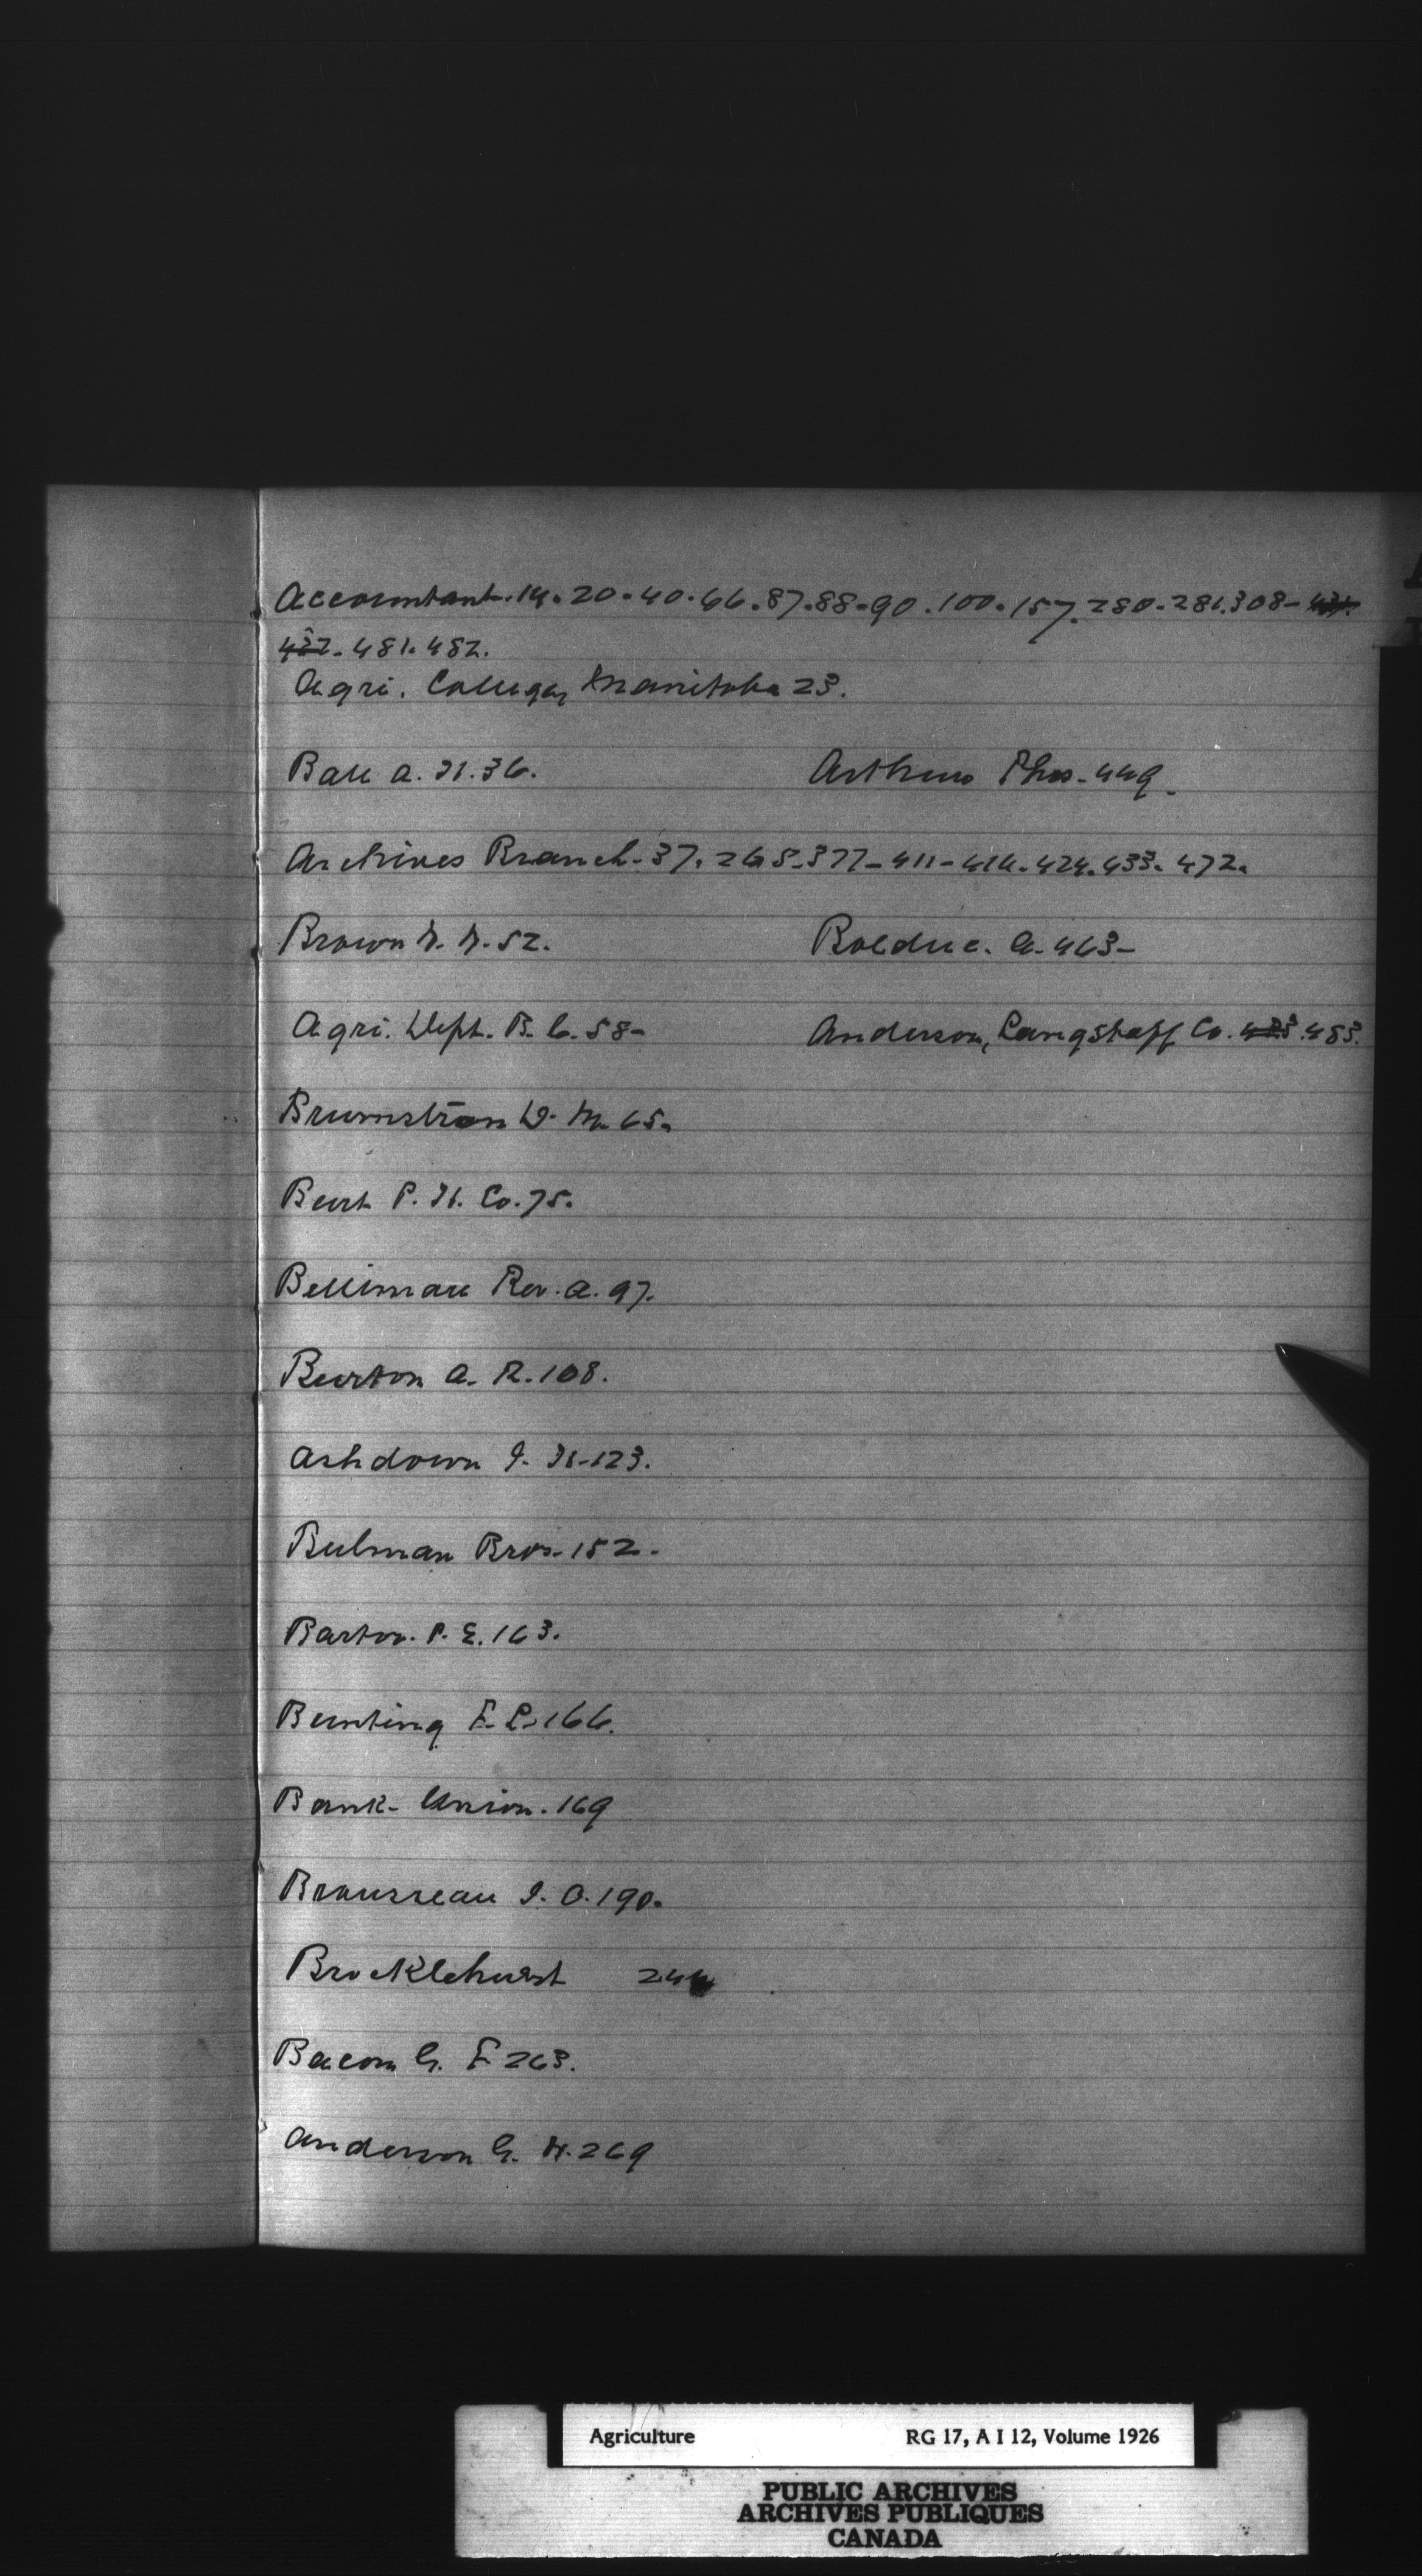 Accountant. 14. 20. 40. 66. 87. 88. 90. 100. 157. 280. 281. 308-
432. 481. 482.
Agri. College, Manitoba 23.
Ball A. H. 36.
Arthurs Thos. 449.
Archives Branch. 37. 265. 377- 411- 414. 424. 433. 472.
Brown N. N. 52.
Bolduc. A. 463-
Agri. Dept. B. C. 58-
Anderson, Langstaff Co. 483.
Brumstrom D. M. 65.
Burt P. H. Co. 75.
Bellimare Rev. A. 97.
Burton A. R. 108.
Ashdown J. H. 123.
Bulman Bros. 152.
Barton. P. E. 163.
Bunting F. L. 166.
Bank- Union. 169
Brousseau J. O. 190.
Brocklehurst 244
Bacon G. F. 263.
Anderson G. W. 269
Agriculture RG 17, A I 12, Volume 1926
PUBLIC ARCHIVES
ARCHIVES PUBLIQUES
CANADA